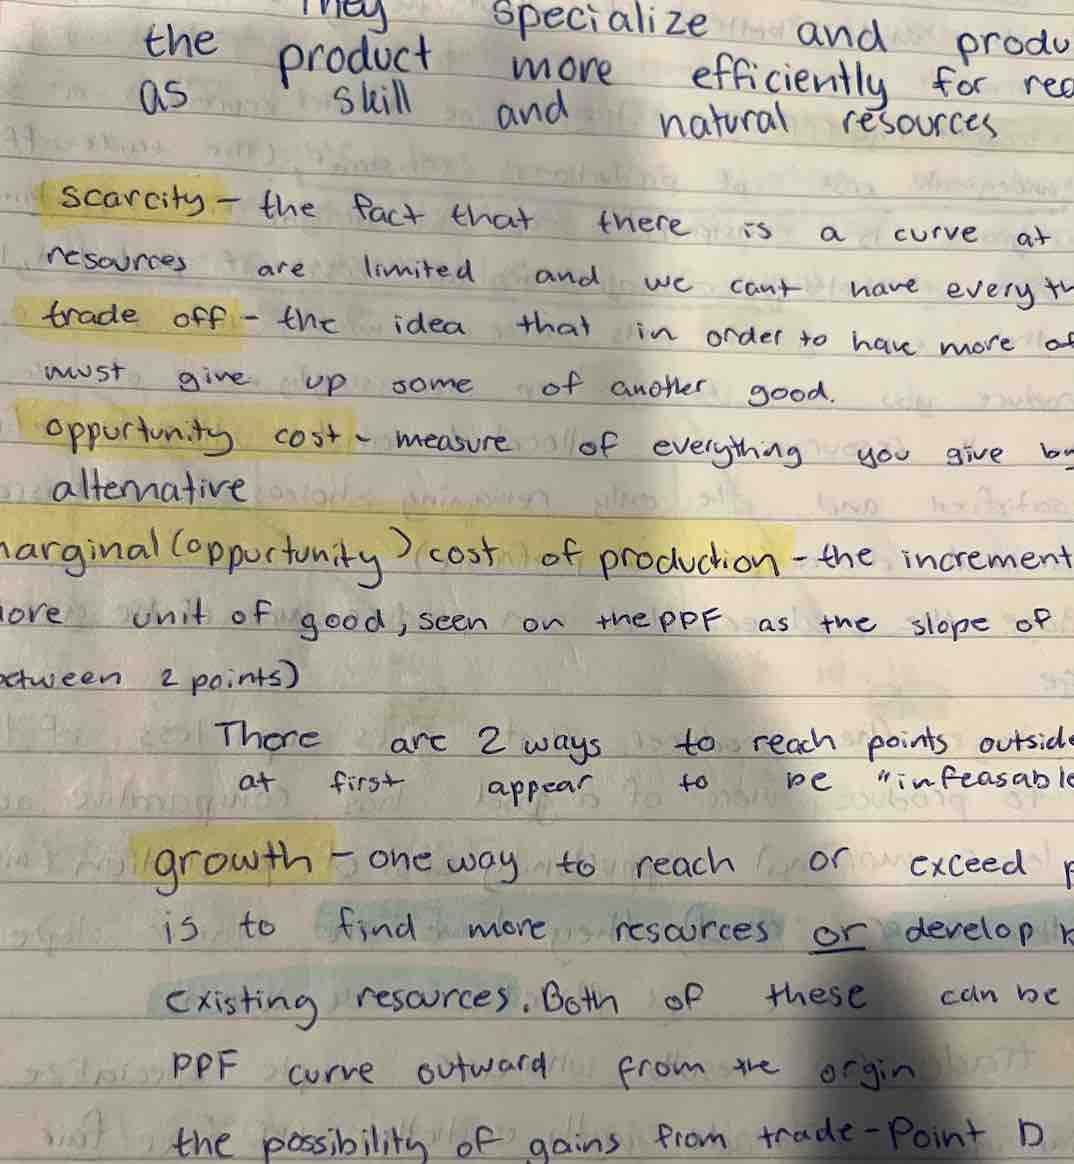 They specialize and produ
the product more efficiently for rea
as skill and natural resources
scarcity - the fact that there is a curve at
resources are limited and we cant have everyth
trade off - the idea that in order to have more of
must give up some of another good.
oppurtunity cost - measure of everything you give
alternative
marginal (oppurtunity) cost of production - the increment
more unit of good, seen on the PPF as the slope of
between 2 points)
There are 2 ways to reach points outside
at first appear to be "infeasable
growth - one way to reach or exceed p
is to find more resources or develop
existing resources. Both of these can be
PPF curve outward from the orgin
the possibility of gains from trade - Point D